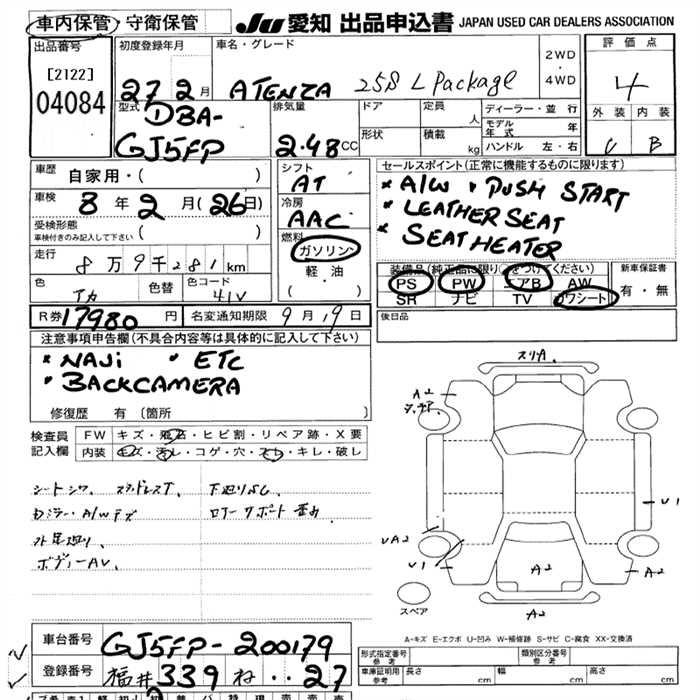 車内保管・守衛保管 JU 愛知 出品申込書 JAPAN USED CAR DEALERS ASSOCIATION
出品番号 初度登録年月 車名・グレード 2WD・4WD 評価点
[2122] 27 2月 ATENZA 25S L Package 4
04084 型式 DBA- 排気量 ドア 定員 人 ディーラー・並行 外装 内装
GJ5FP 2.48CC 形状 積載 kg モデル年式 年 C B
ハンドル 左・右
車歴 自家用・( ) シフト AT セールスポイント(正常に機能するものに限ります)
車検 8年2月(26日) 冷房 AAC * A/W * PUSH START
受検形態 車検付きのみ記入して下さい ( ) 燃料 * LEATHER SEAT
走行 8万9千281km ガソリン * SEAT HEATER
軽・油 装備品(純正品に限り○をつけてください) 新車保証書
色 色替 色コード 41V ( ・ ) PS PW エアB AW 有・無
SR ナビ TV カワシート
R券 17980円 名変通知期限 9月19日 後日品
注意事項申告欄(不具合内容等は具体的に記入して下さい)
* NAVi * ETC
* BACKCAMERA
修復歴 有 〔箇所
検査員記入欄 FW キズ・飛石・ヒビ割・リペア跡・X要
内装 キズ・汚レ・コゲ・穴・スレ・キレ・破レ
シートシワ スタッドレスT 下廻りサビ
ドアミラー・A/Wキズ
外足廻り
ボディーAV
スリA
A2
U1
UA2
U1
A2
A2
A2
スペア
A-キズ E-エクボ U-凹み W-補修跡 S-サビ C-腐食 XX-交換済
車台番号 GJ5FP-200179 形式指定番号 参考 類別区分番号 参考
登録番号 福井 339 ね ・・27 車庫証明用 参考 長さ cm 幅 cm 高さ cm